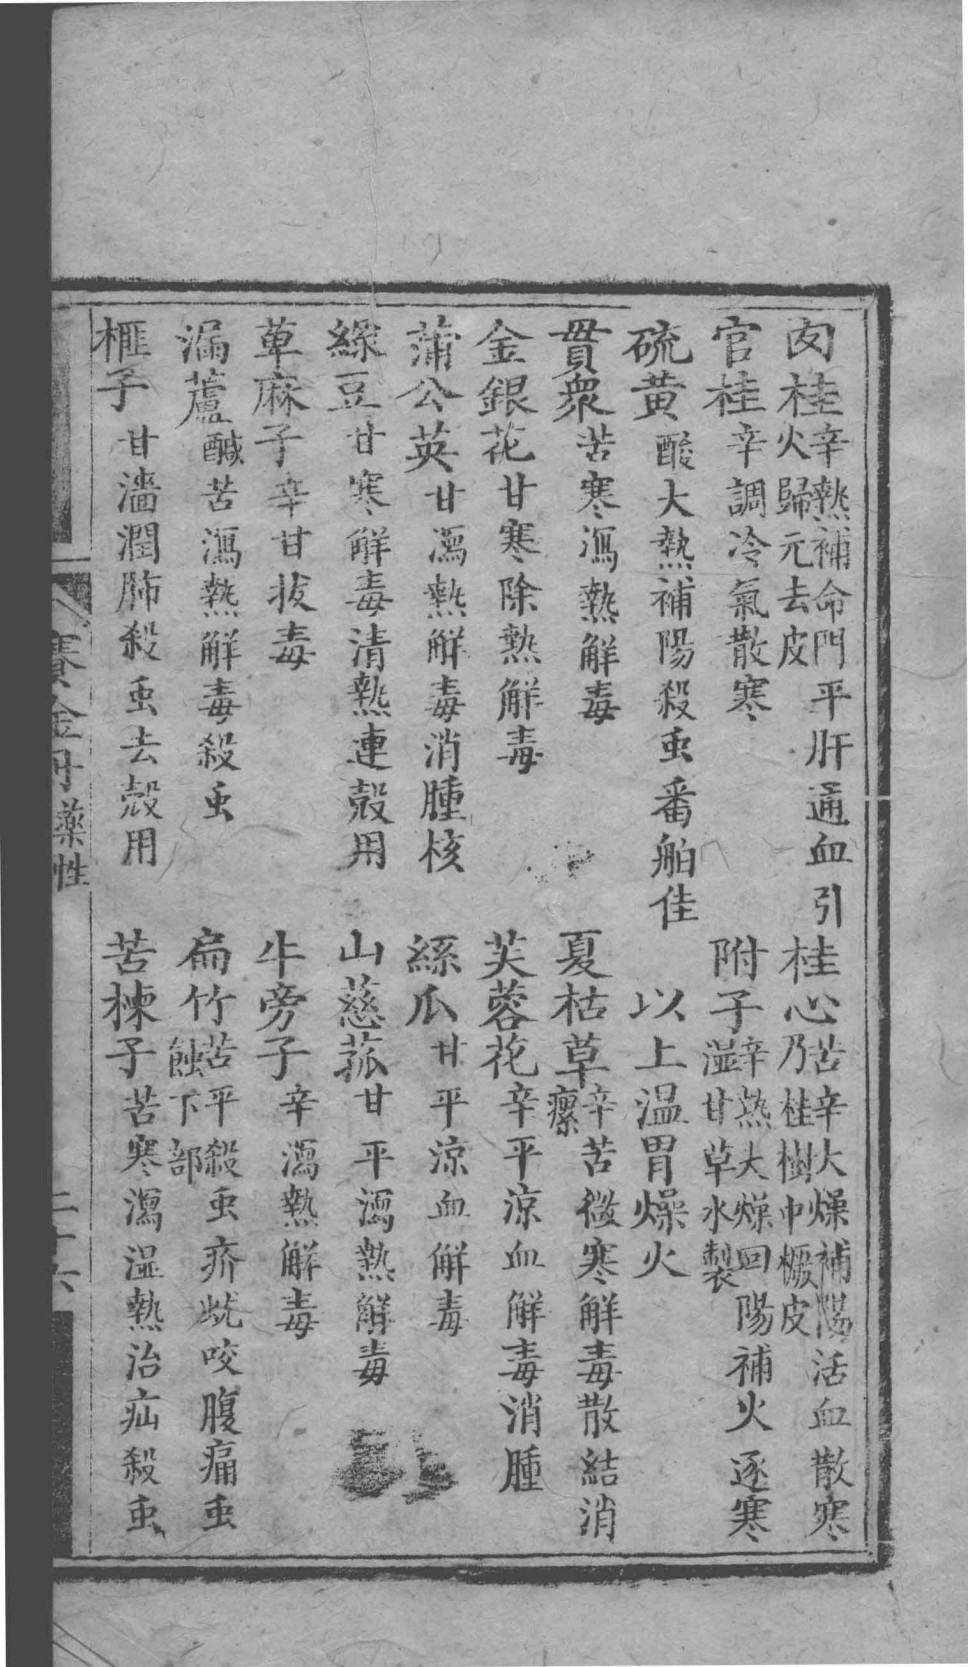 肉桂辛熱補命門平肝通血引火歸元去皮
桂心苦辛大燥補陽活血散寒乃桂樹中橛皮
官桂辛調冷氣散寒
附子辛熱大燥回陽補火逐寒濕甘草水製
硫黃酸大熱補陽殺虫番舶佳
以上温胃燥火
貫衆苦寒瀉熱解毒
夏枯草辛苦微寒解毒散結消瘰
金銀花甘寒除熱解毒
芙蓉花辛平凉血解毒消腫
蒲公英甘瀉熱解毒消腫核
絲瓜甘平凉血解毒
綠豆甘寒解毒清熱連殼用
山慈菰甘平瀉熱解毒
萆麻子辛甘拔毒
牛旁子辛瀉熱解毒
漏蘆鹹苦瀉熱解毒殺虫
扁竹苦平殺虫疥虼咬腹痛虫蝕下部
榧子甘濇潤肺殺虫去殼用
苦楝子苦寒瀉湿熱治疝殺虫
賽金丹藥性
二十六